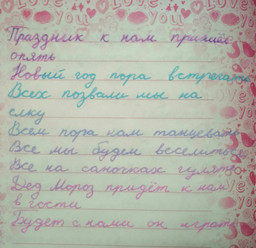 Праздник к нам пришёл
опять
Новый год пора встречать
Всех позвали мы на
елку
Всем пора нам танцевать
Все мы будем веселиться
Все на саночках гулять
Дед Мороз придёт к нам
в гости
Будет с нами он играть
LOVE
YOU
LOVE
YOU